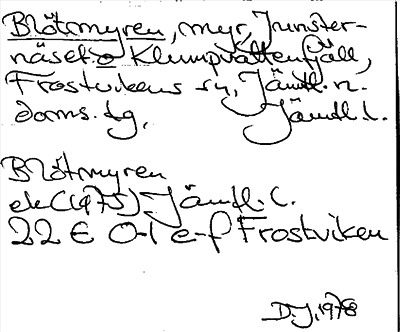 Blötmyren, myr, Junster-
näset o Klumpvattenfjäll,
Frostvikens sn, Jämtl. n.
doms. dg, Jämtl. l.
Blötmyren
ek (1975) Jämtl. l.
22 E 0-1 e-f Frostviken
D.J. 1978